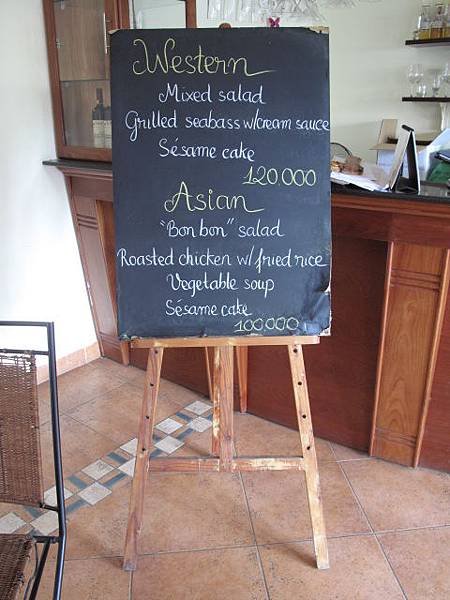 Western
Mixed salad
Grilled seabass w/cream sauce
Sésame cake
120.000
Asian
"Bon bon" salad
Roasted chicken w/fried rice
Vegetable soup
Sésame cake
100.000